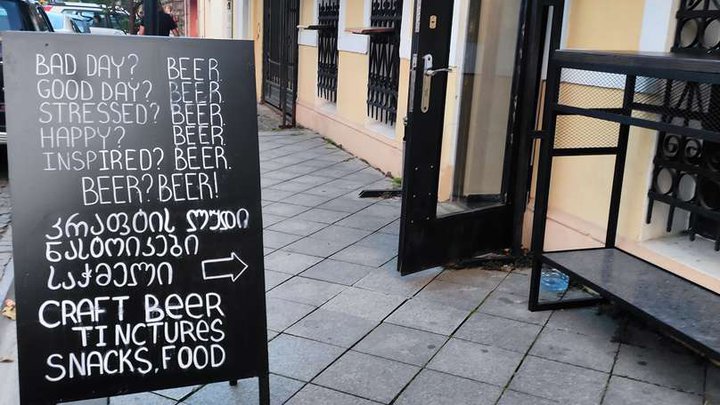 BAD DAY? BEER.
GOOD DAY? BEER.
STRESSED? BEER.
HAPPY? BEER.
INSPIRED? BEER.
BEER? BEER!
კრაფტის ლუდი
ნასტოიკები
საჭმელი
CRAFT BEER
TINCTURES
SNACKS, FOOD